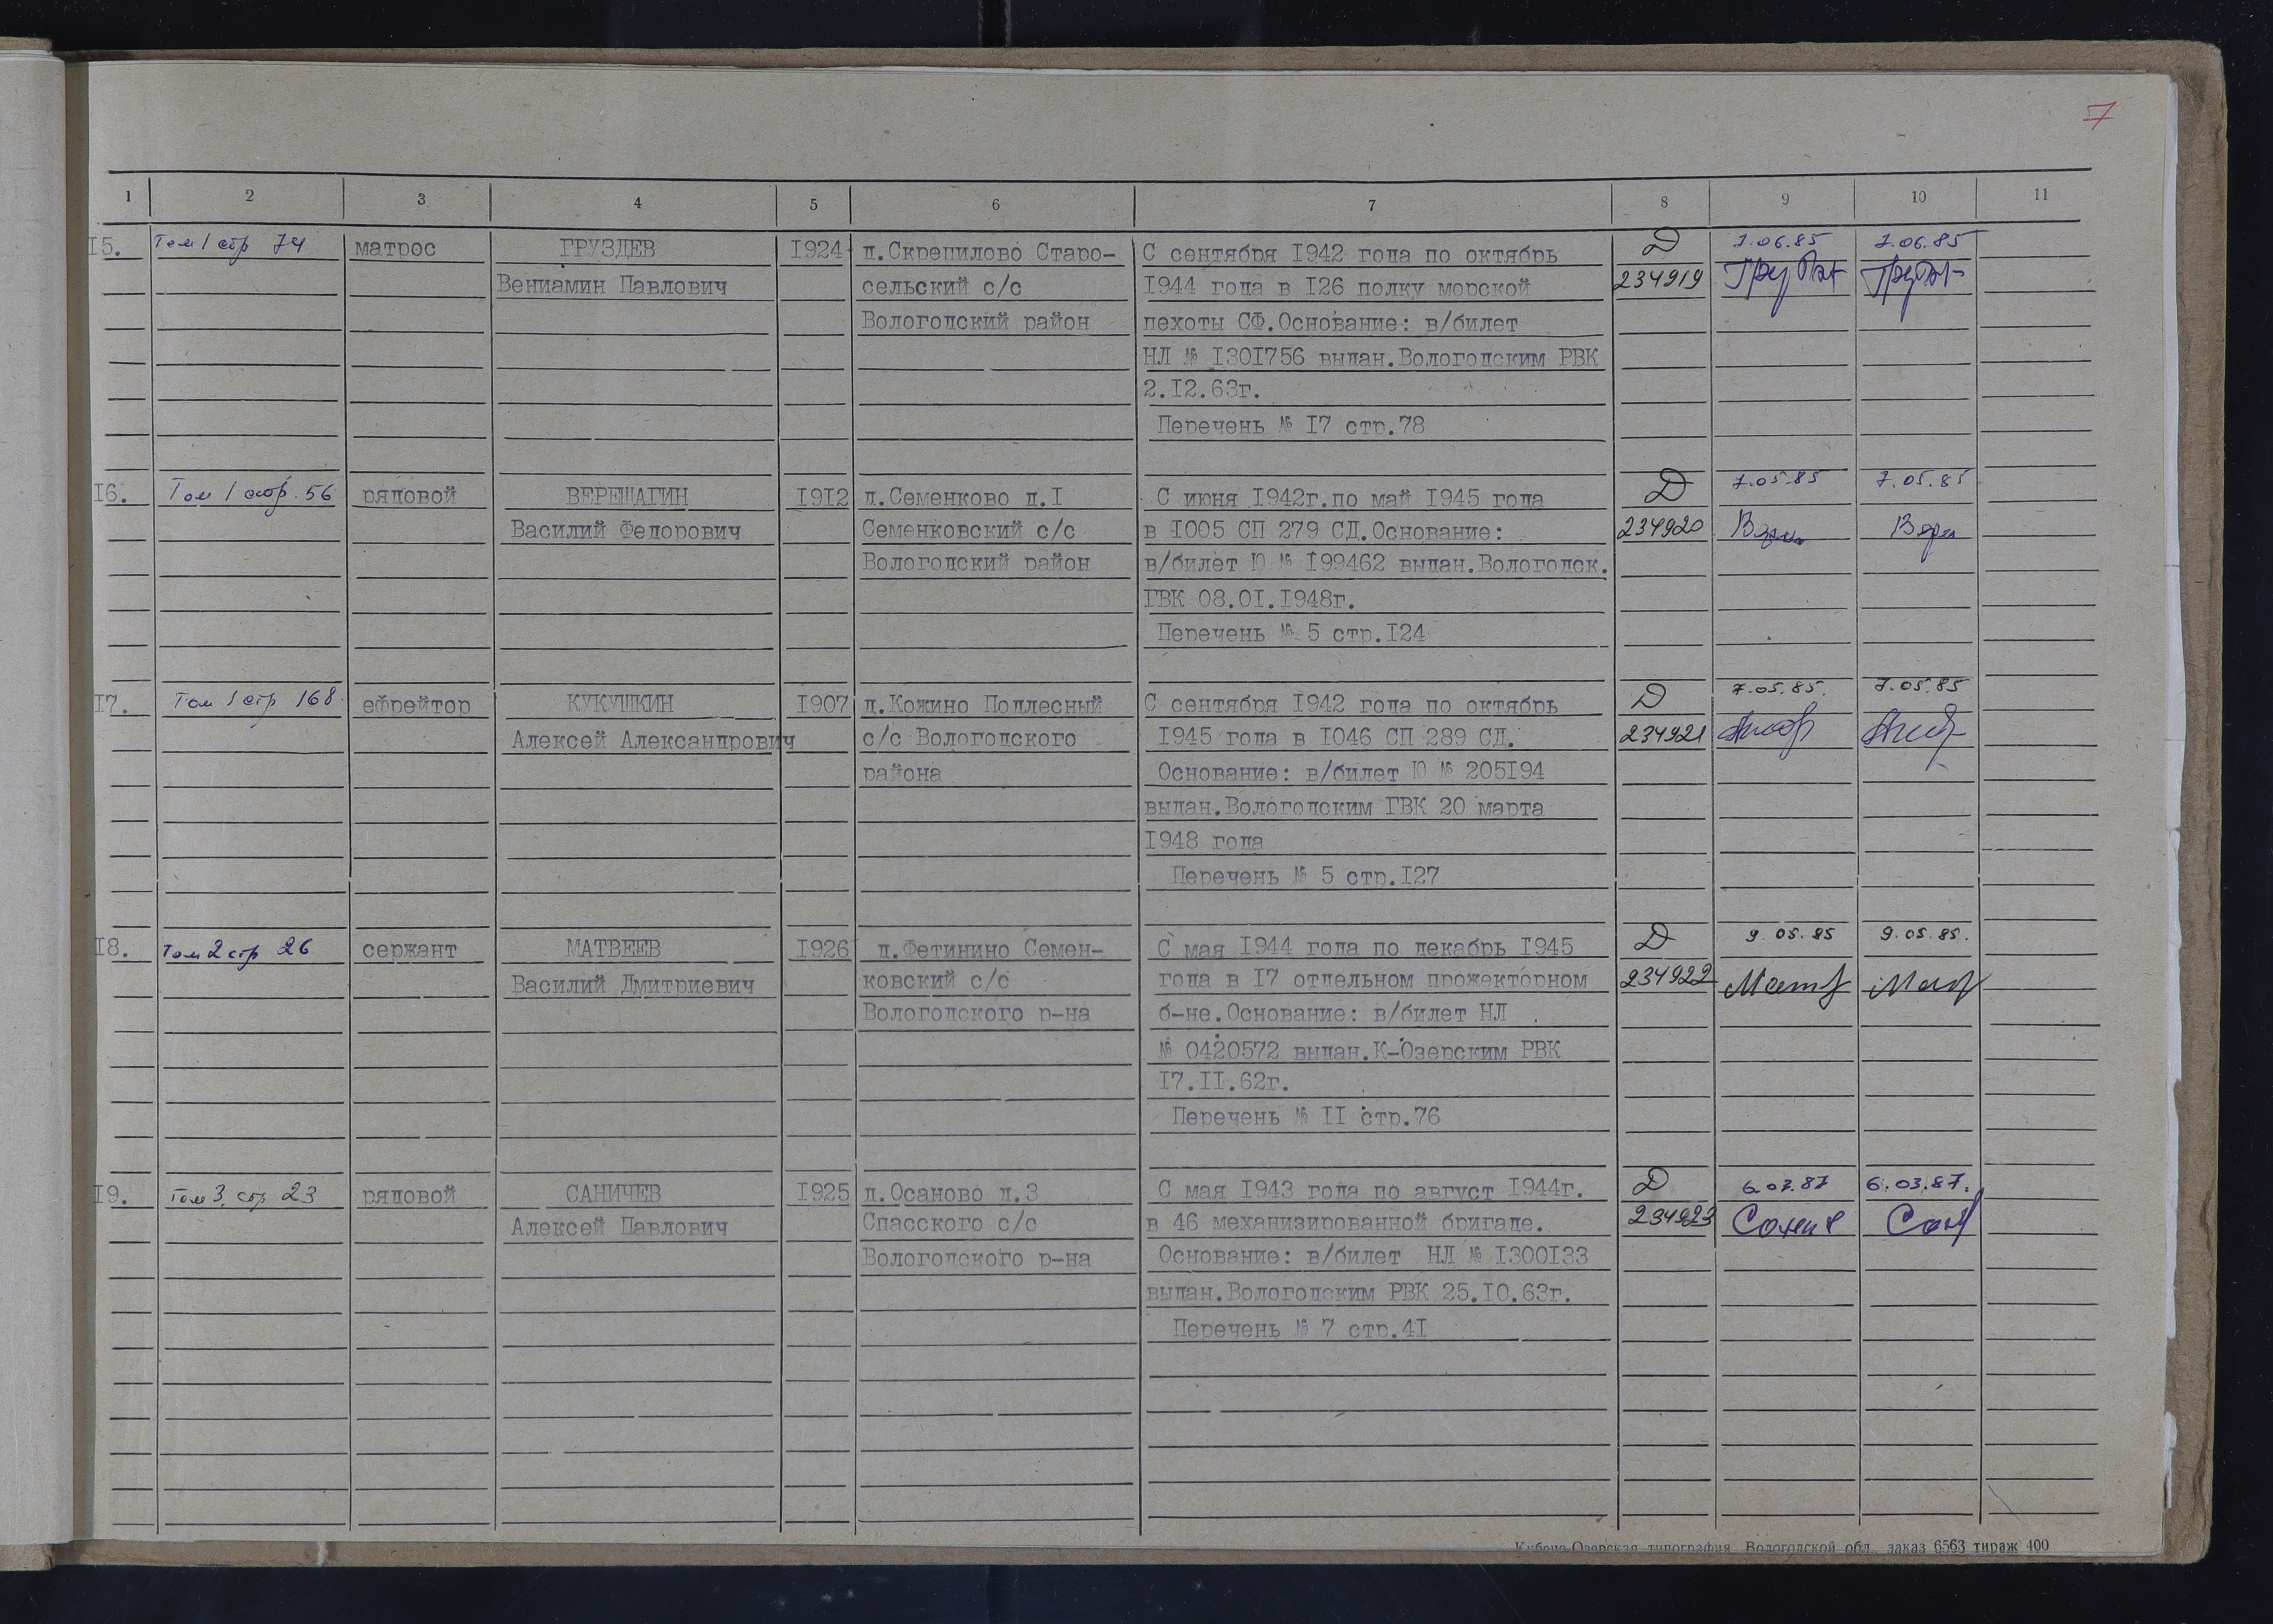 7
1 2 3 4 5 6 7 8 9 10 11
15. Том 1 стр 74 матрос ГРУЗДЕВ 1924 д.Скрепилово Старо- С сентября 1942 года по октябрь Д 7.06.85 7.06.85
Вениамин Павлович сельский с/с 1944 года в 126 полку морской 234919
Вологодский район пехоты СФ.Основание: в/билет
НЛ № 1301756 выдан.Вологодским РВК
2.12.63г.
Перечень № 17 стр.78
16. Том 1 стр. 56 рядовой ВЕРЕЩАГИН 1912 д.Семенково д.1 С июня 1942г.по май 1945 года Д 7.05.85 7.05.85
Василий Федорович Семенковский с/с в 1005 СП 279 СД.Основание: 234920
Вологодский район в/билет Ю № 199462 выдан.Вологодск.
ГВК 08.01.1948г.
Перечень № 5 стр.124
17. Том 1 стр 168 ефрейтор КУКУШКИН 1907 д.Кожино Подлесный С сентября 1942 года по октябрь Д 7.05.85. 7.05.85
Алексей Александрович с/с Вологодского 1945 года в 1046 СП 289 СД. 234921
района Основание: в/билет Ю № 205194
выдан.Вологодским ГВК 20 марта
1948 года
Перечень № 5 стр.127
18. Том 2 стр 26 сержант МАТВЕЕВ 1926 д.Фетинино Семен- С мая 1944 года по декабрь 1945 Д 9.05.85 9.05.85.
Василий Дмитриевич ковский с/с года в 17 отдельном прожекторном 234922
Вологодского р-на б-не.Основание: в/билет НЛ
№ 0420572 выдан.К-Озерским РВК
17.11.62г.
Перечень № 11 стр.76
19. Том 3 стр 23 рядовой САНИЧЕВ 1925 д.Осаново д.3 С мая 1943 года по август 1944г. Д 6.03.87 6.03.87.
Алексей Павлович Спасского с/с в 46 механизированной бригаде. 234923
Вологодского р-на Основание: в/билет НЛ № 1300133
выдан.Вологодским РВК 25.10.63г.
Перечень № 7 стр.41
Кубено-Озерская типография Вологодской обл. заказ 6563 тираж 400